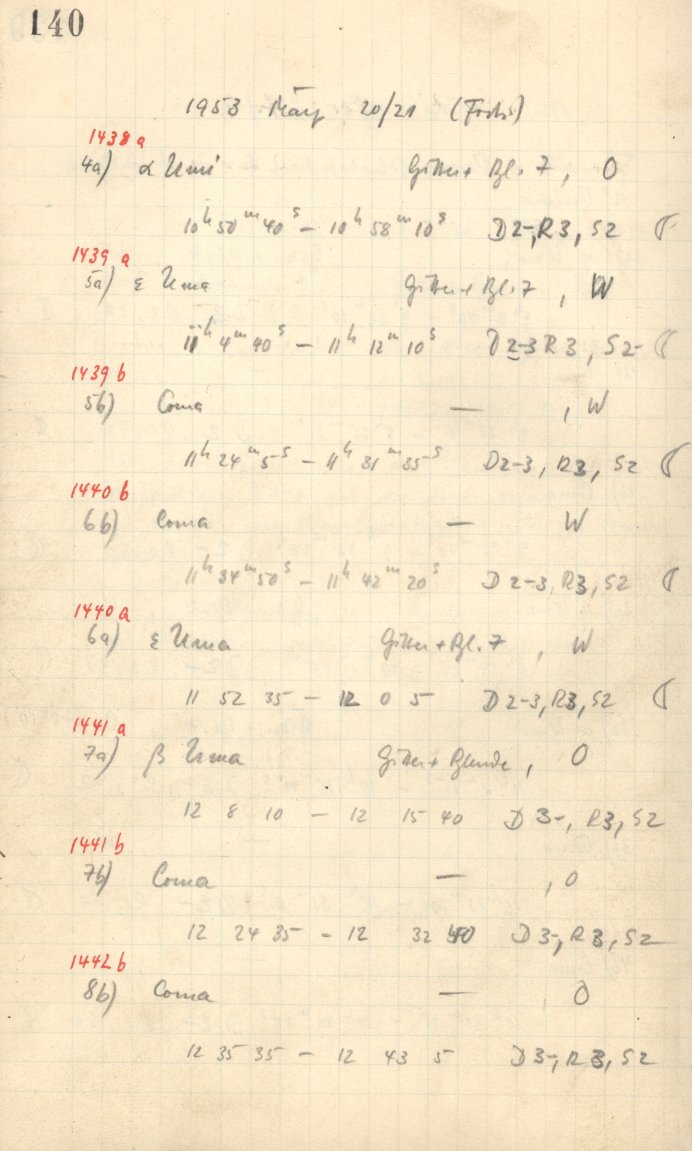 140
1953 May 20/21
1438 a
4a) α Umi Gitter + Bl. 7, O
10h 50m 40s – 10h 58m 10s D2-, R3, S2
1439 a
5a) ε Uma Gitter + Bl. 7, W
11h 4m 40s – 11h 12m 10s D2-3 R3, S2-
1439 b
5b) Coma — , W
11h 24m 5s – 11h 31m 35s D2-3, R3, S2
1440 b
6b) Coma — W
11h 34m 50s – 11h 42m 20s D2-3, R3, S2
1440 a
6a) ε Uma Gitter + Bl. 7, W
11 52 35 – 12 0 5 D2-3, R3, S2
1441 a
7a) β Uma Gitter + Blende, O
12 8 10 – 12 15 40 D3-, R3, S2
1441 b
7b) Coma — , O
12 24 35 – 12 32 D3-, R3, S2
1442 b
8b) Coma — O
12 35 35 – 12 43 5 D3-, R3, S2